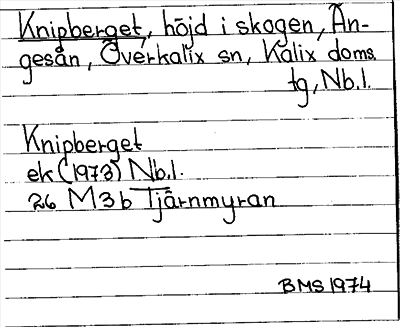 Knipberget, höjd i skogen, Än-
gesån, Överkalix sn, Kalix doms.
tg, Nb.l.
Knipberget
ek (1973) Nb.l.
26 M3b Tjärnmyran
BMS 1974